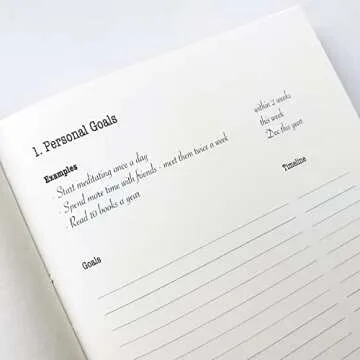 1. Personal Goals
Examples
· Start meditating once a day within 2 weeks
· Spend more time with friends - meet them twice a week this week
· Read 10 books a year Dec this year
Goals Timeline